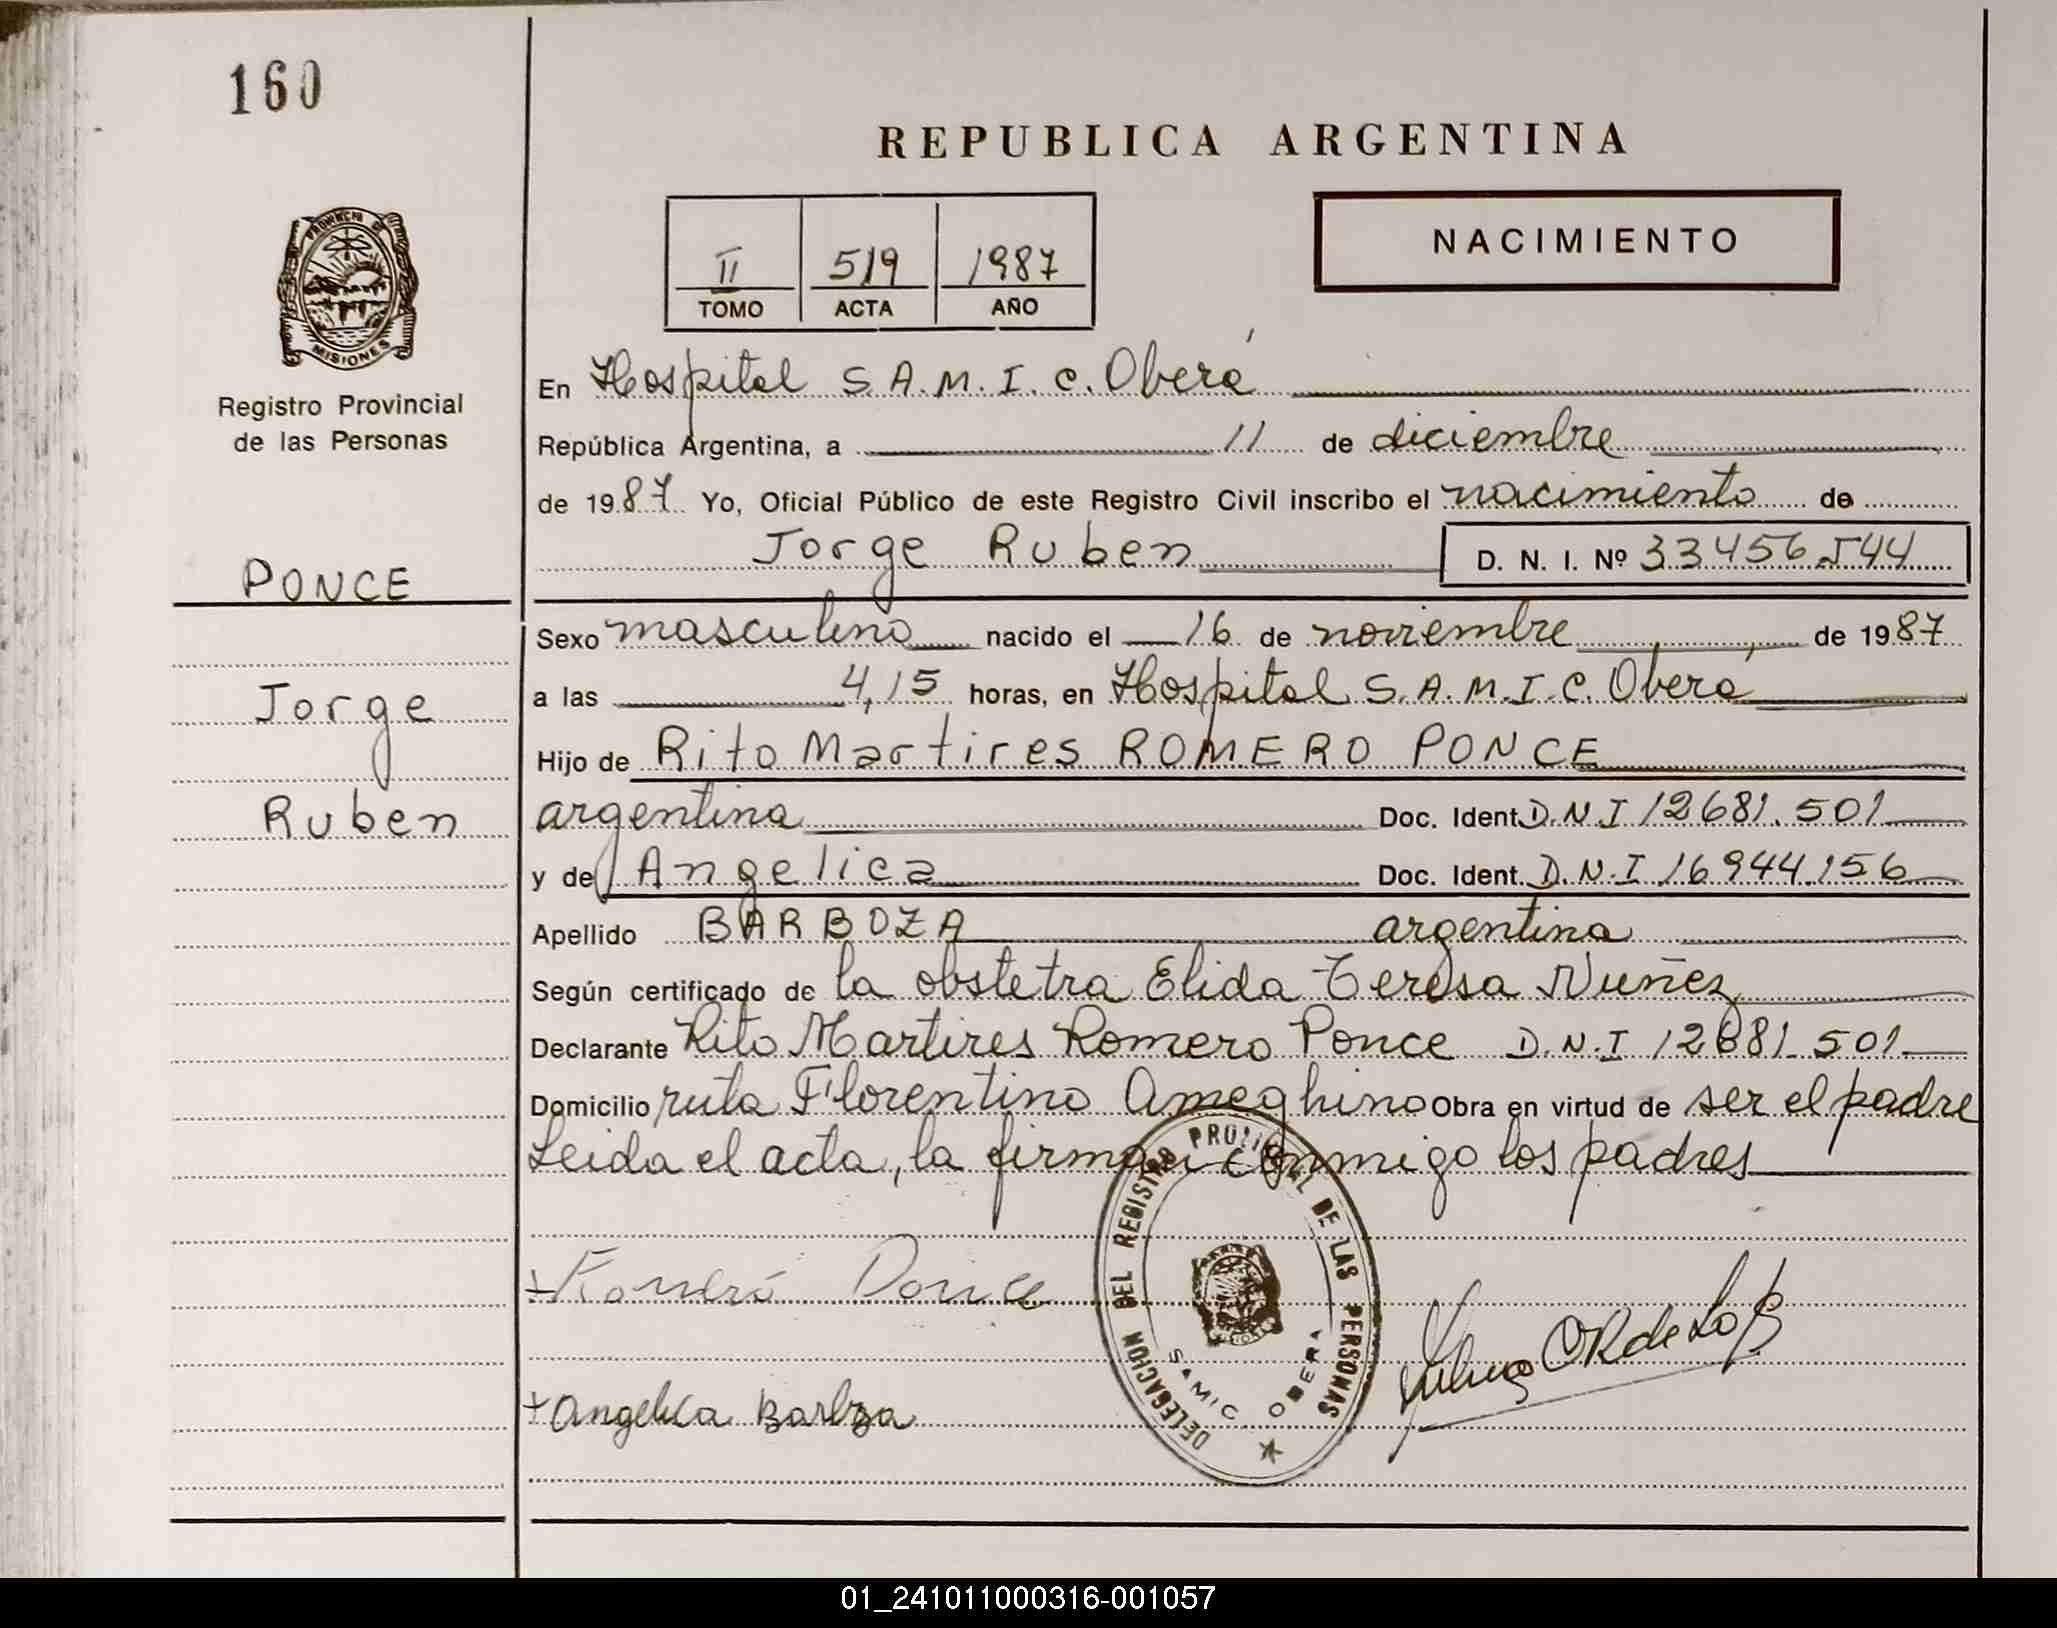 160
REPUBLICA ARGENTINA
NACIMIENTO
II 519 1987
TOMO ACTA AÑO
PROVINCIA DE
MISIONES
Registro Provincial
de las Personas
PONCE
Jorge
Ruben
En Hospital S.A.M.I.C. Oberá
República Argentina, a 11 de diciembre
de 1987 Yo, Oficial Público de este Registro Civil inscribo el nacimiento de
Jorge Ruben D. N. I. Nº 33456544
Sexo masculino nacido el 16 de noviembre de 1987
a las 4,15 horas, en Hospital S.A.M.I.C. Oberá
Hijo de Rito Martires ROMERO PONCE
argentina Doc. Ident. D.N.I 12681.501
y de Angelica Doc. Ident. D.N.I 16944.156
Apellido BARBOZA argentina
Según certificado de la obstetra Elida Teresa Nuñez
Declarante Rito Martires Romero Ponce D.N.I 12681.501
Domicilio ruta Florentino Ameghino Obra en virtud de ser el padre
Leida el acta, la firman conmigo los padres
Romero Ponce
Angelica Barboza
DELEGACION DEL REGISTRO PROVINCIAL DE LAS PERSONAS
SAMIC OBERA
01_241011000316-001057